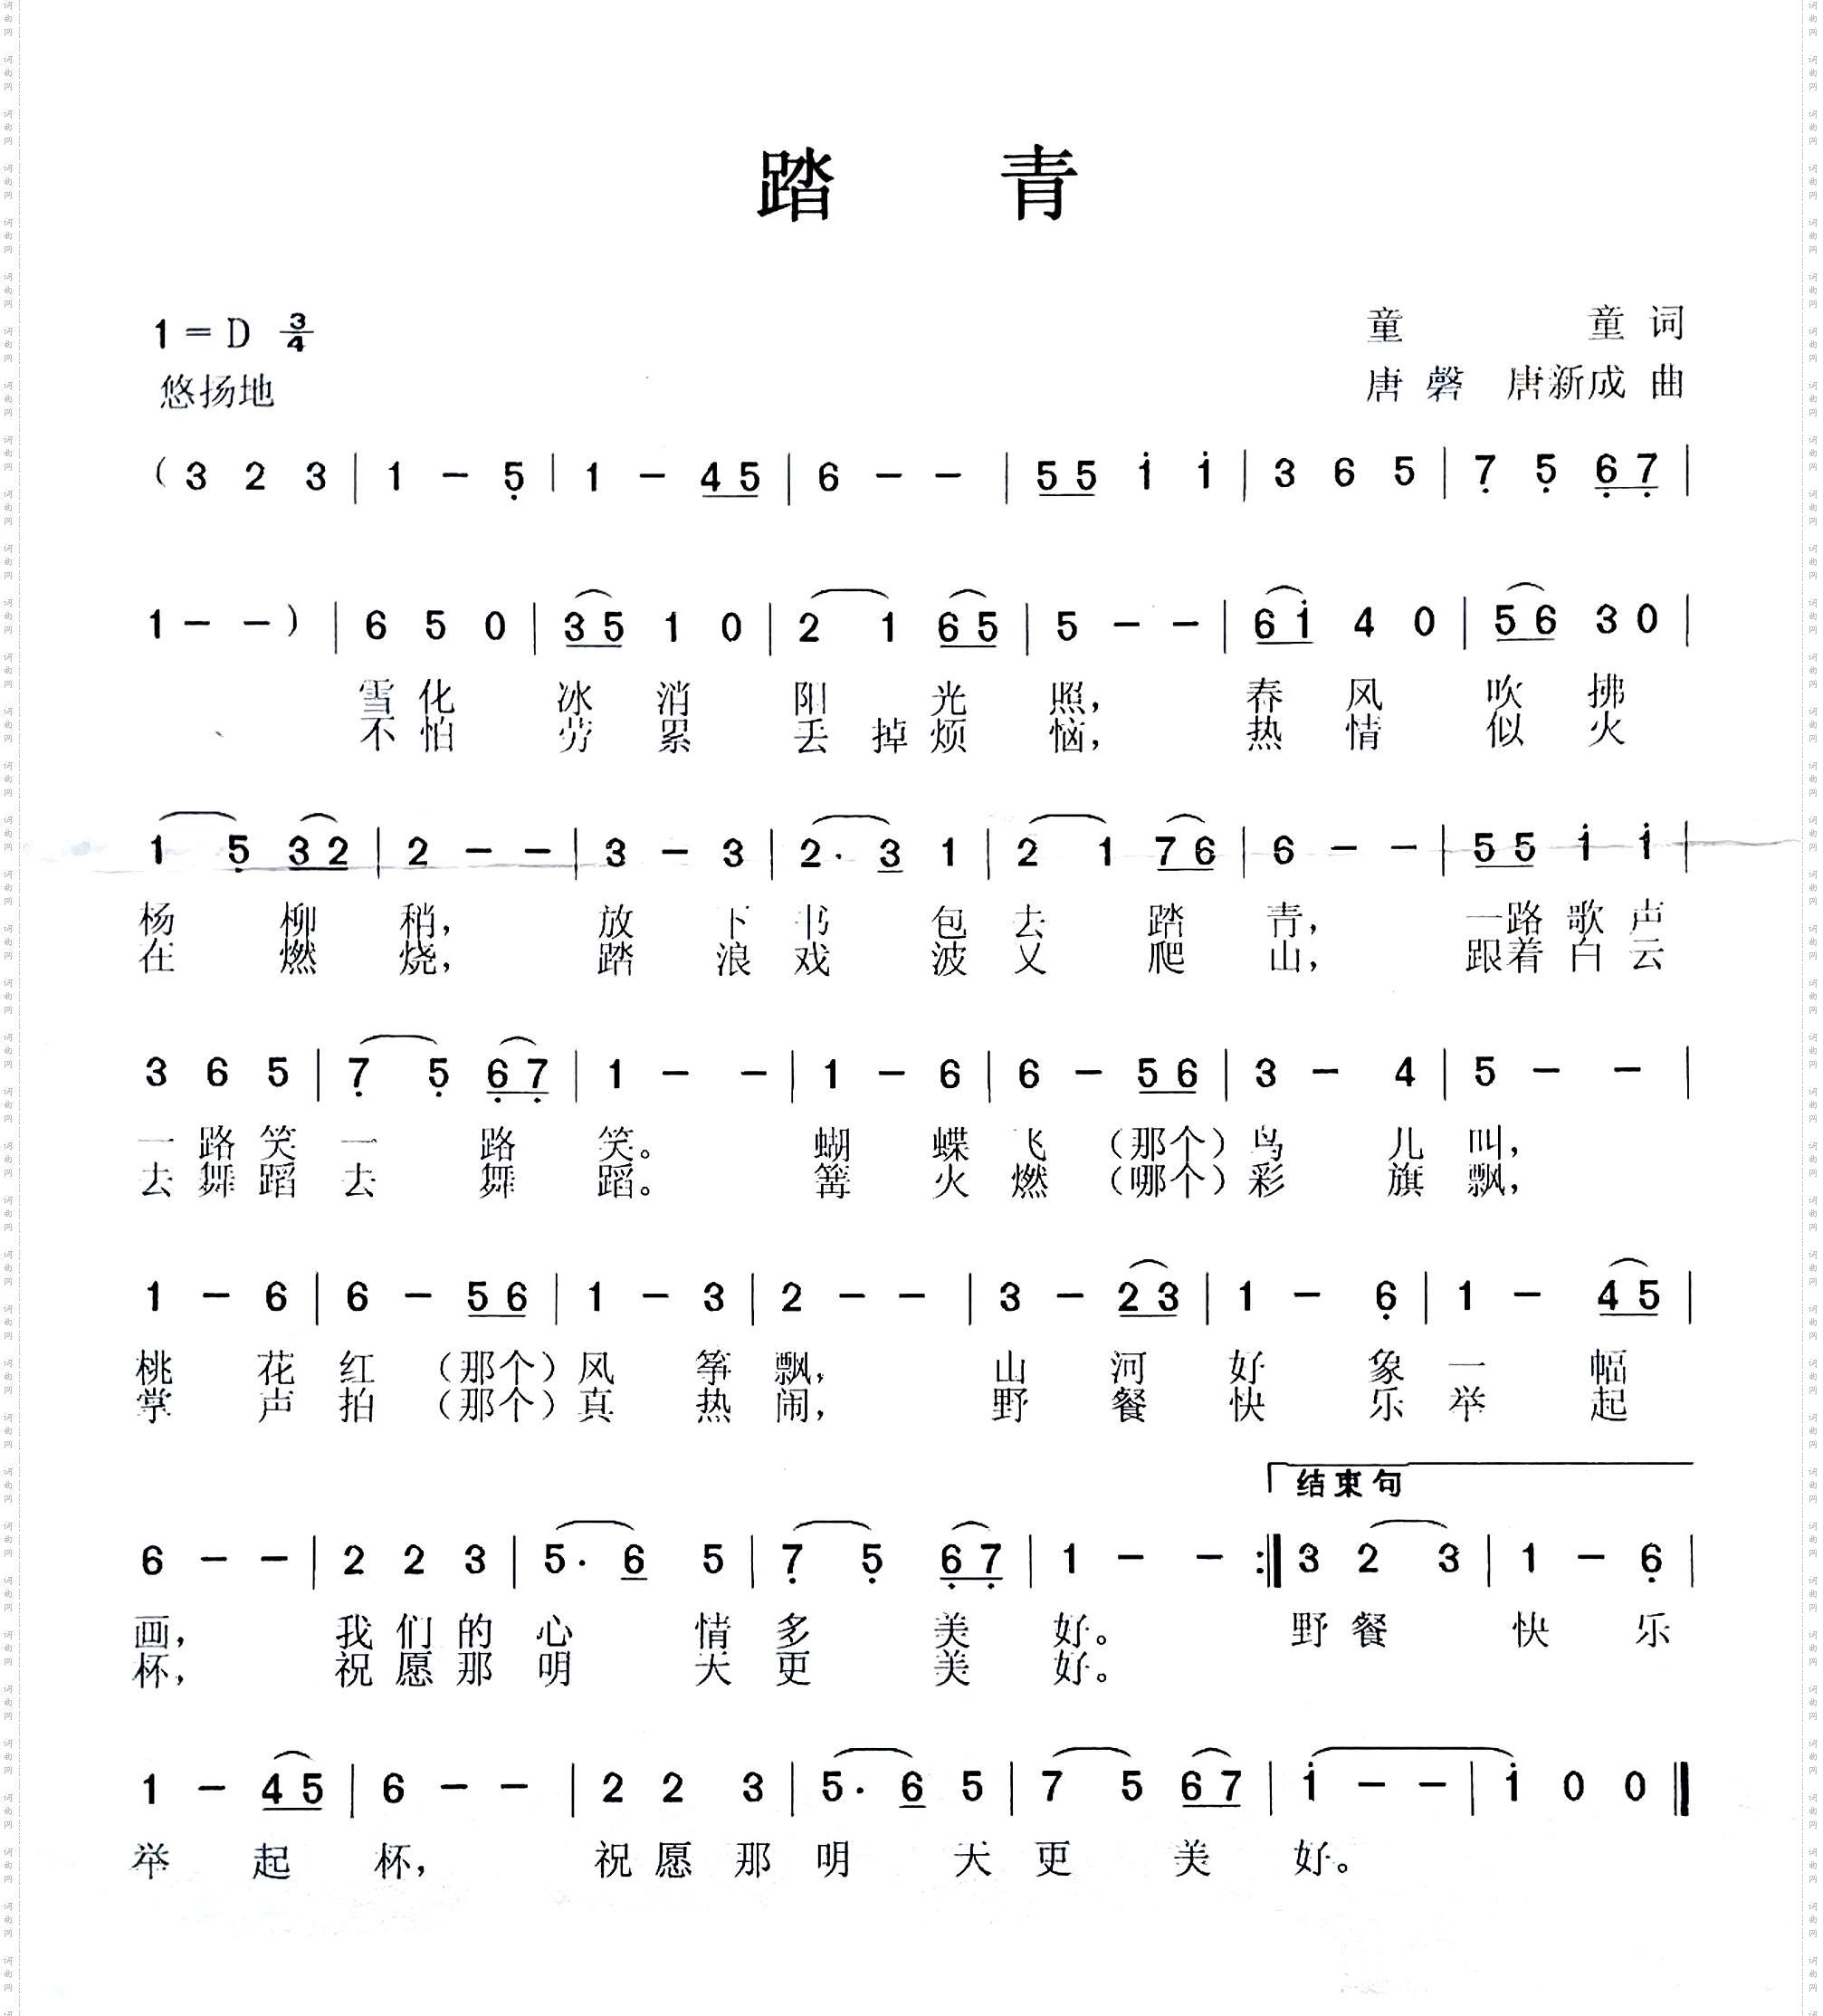 踏 青
1=D 3/4
童 童 词
悠扬地
唐 磬 唐新成 曲
(3 2 3 | 1 - 5̣ | 1 - 4 5 | 6 - - | 5 5 i i | 3 6 5 | 7̣ 5̣ 6̣ 7̣ |
1 - -) | 6 5 0 | 3 5 1 0 | 2 1 6 5 | 5 - - | 6 i 4 0 | 5 6 3 0 |
雪化 冰消 阳光照, 春风 吹拂
不怕 劳累 丢掉烦恼, 热情 似火
1 5̣ 3 2 | 2 - - | 3 - 3 | 2· 3 1 | 2 1 7 6 | 6 - - | 5 5 i i |
杨柳稍, 放下书包去踏青, 一路歌声
在燃烧, 踏浪戏波又爬山, 跟着白云
3 6 5 | 7̣ 5̣ 6̣ 7̣ | 1 - - | 1 - 6 | 6 - 5 6 | 3 - 4 | 5 - - |
一路笑一路笑。 蝴蝶飞(那个)鸟儿叫,
去舞蹈去舞蹈。 篝火燃(哪个)彩旗飘,
1 - 6 | 6 - 5 6 | 1 - 3 | 2 - - | 3 - 2 3 | 1 - 6̣ | 1 - 4 5 |
桃花红(那个)风筝飘, 山河好象一幅
掌声拍(那个)真热闹, 野餐快乐举起
结束句
6 - - | 2 2 3 | 5· 6 5 | 7̣ 5̣ 6̣ 7̣ | 1 - - :‖ 3 2 3 | 1 - 6̣ |
画, 我们的心情多美好。 野餐快乐
杯, 祝愿那明天更美好。
1 - 4 5 | 6 - - | 2 2 3 | 5· 6 5 | 7 5 6 7 | i - - | i 0 0 ‖
举起杯, 祝愿那明天更美好。
词曲网